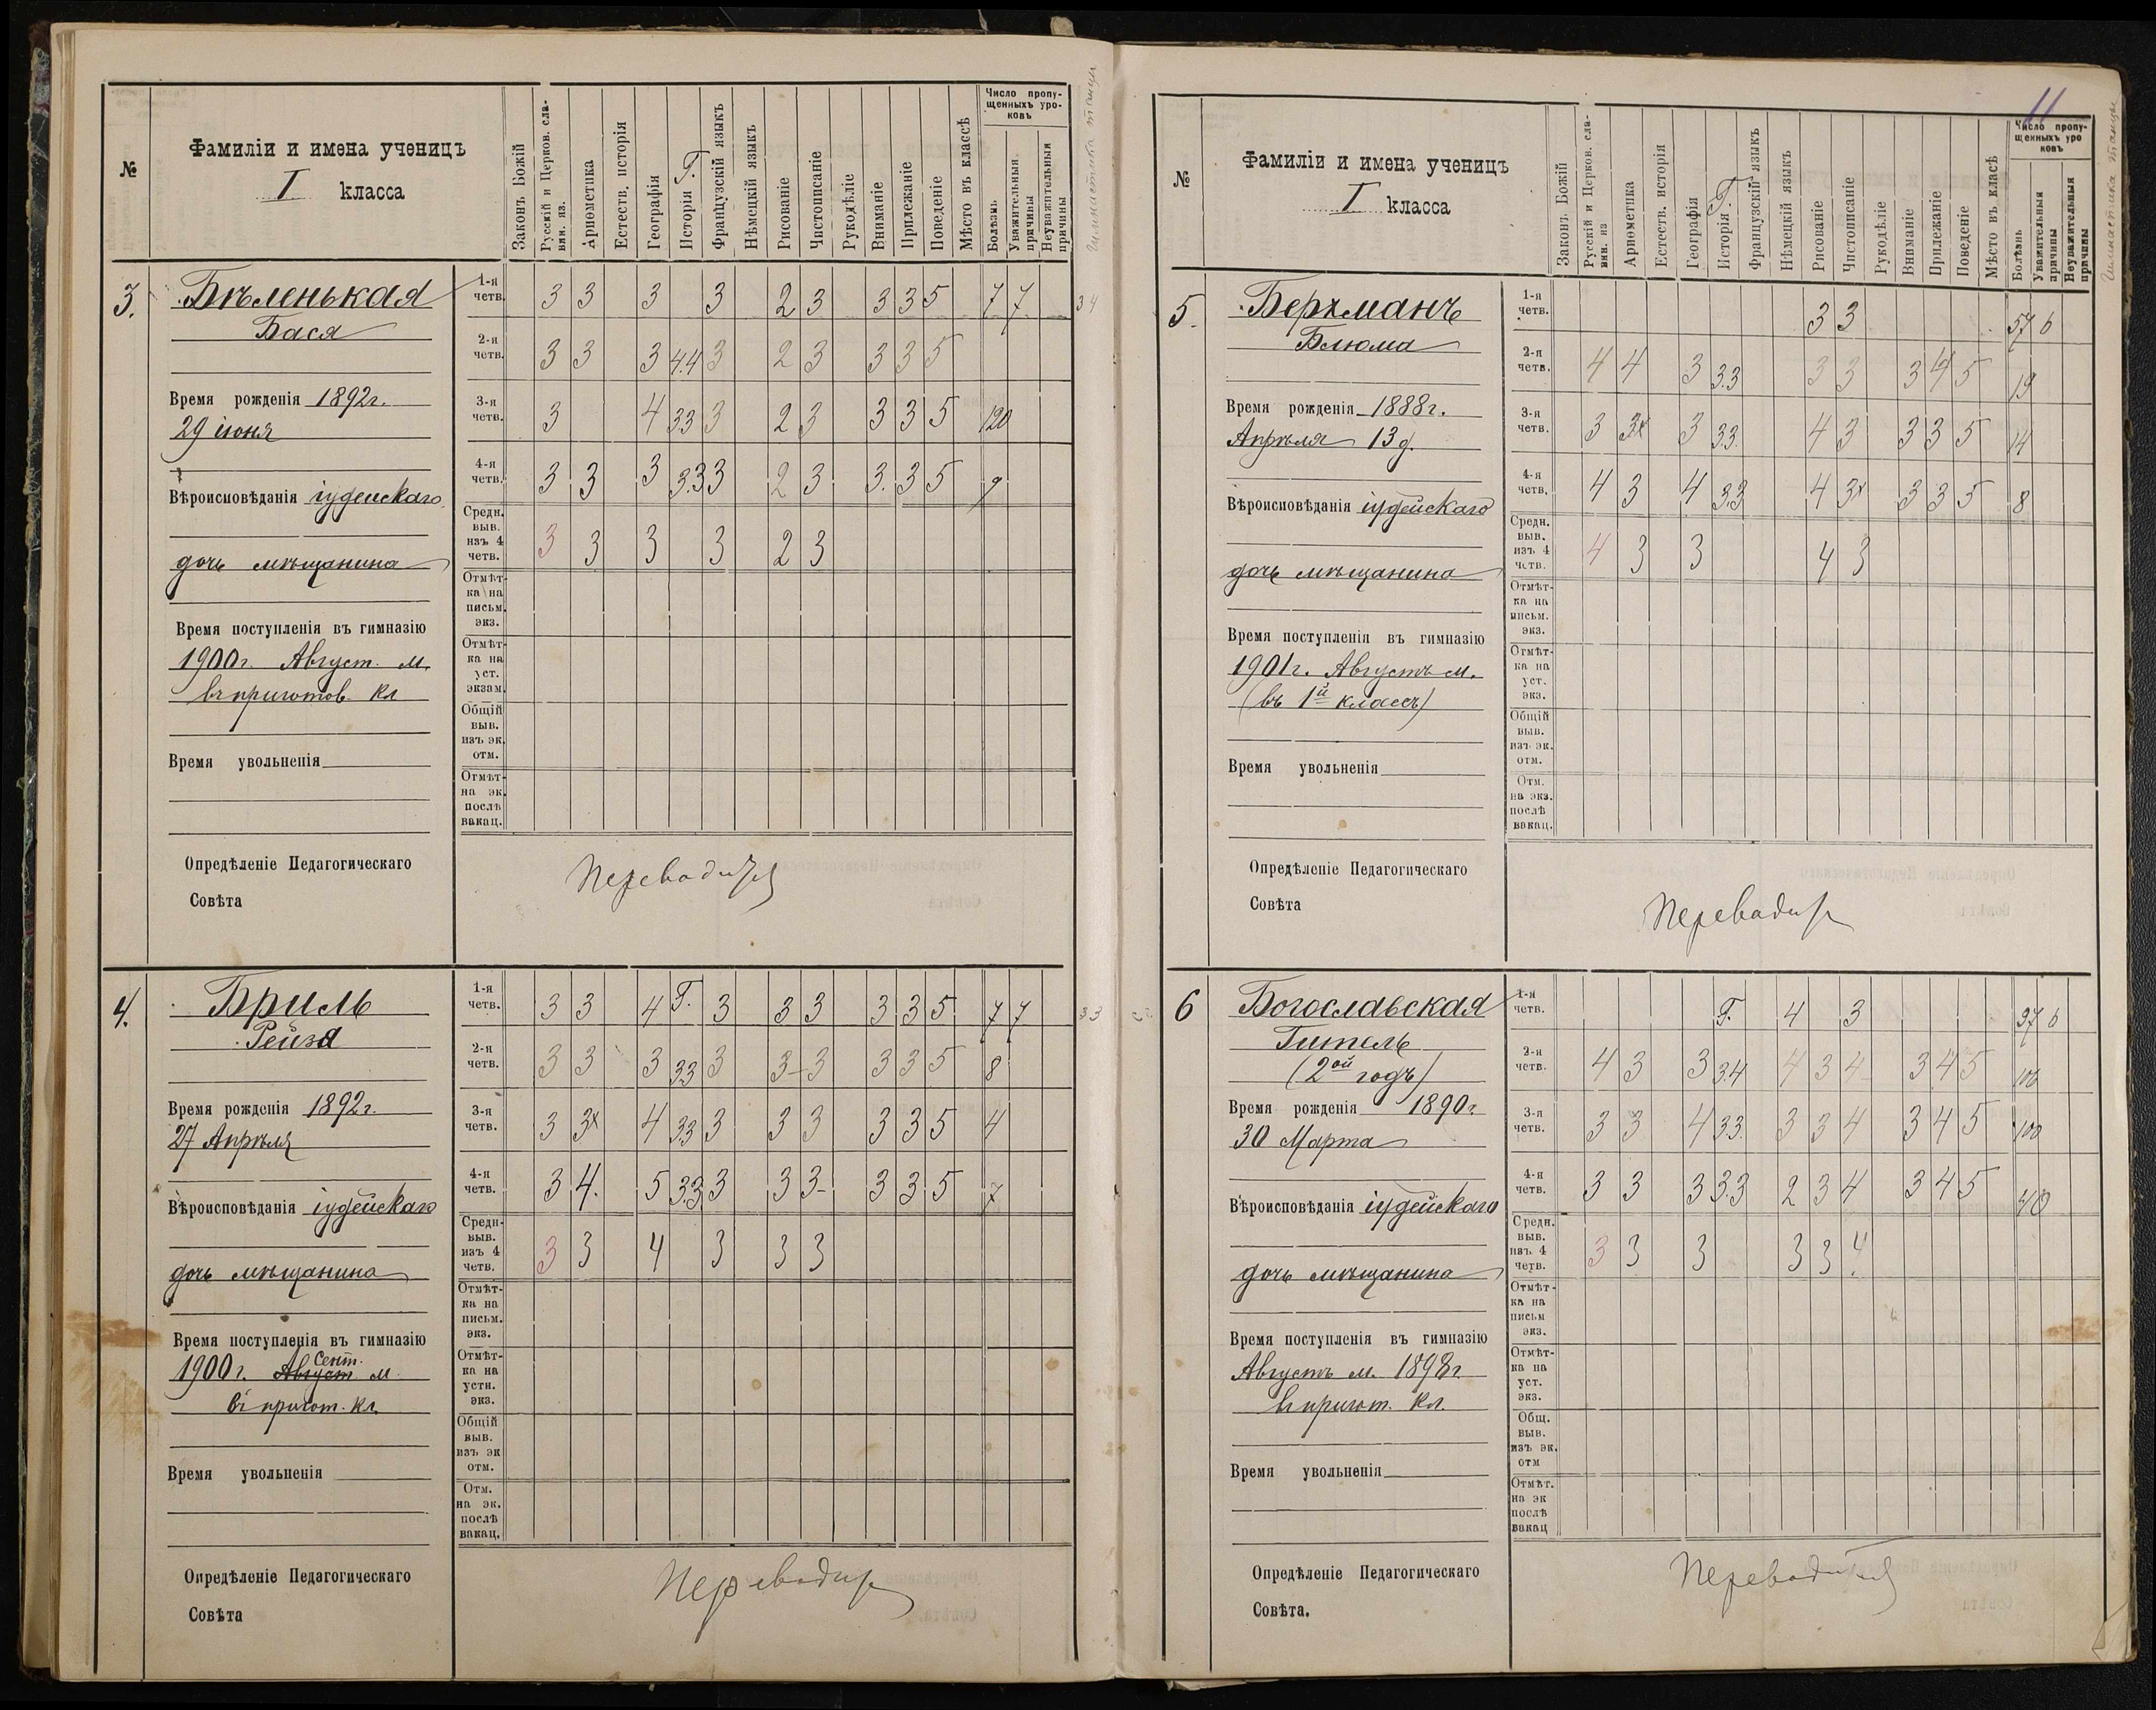 №
Фамиліи и имена ученицъ
I класса
Законъ Божій
Русскій и Церков. сла-
вян. яз.
Ариѳметика
Естеств. исторія
Географія
Исторія Г.
Французскій языкъ
Нѣмецкій языкъ
Рисованіе
Чистописаніе
Рукодѣліе
Вниманіе
Прилежаніе
Поведеніе
Мѣсто въ классѣ
Число пропу-
щенныхъ уро-
ковъ
Болѣзнь
Уважительныя
причины
Неуважительныя
причины
Гимнастика танцы
3.
Бѣленькая
Бася
Время рожденія 1892г.
29 іюня
Вѣроисповѣданія іудейскаго
дочь мѣщанина
Время поступленія въ гимназію
1900г. Август. м.
въ приготов. кл
Время увольненія
1-я четв. 3 3 3 3 2 3 3 3 5 7 7 34
2-я четв. 3 3 3 4.4 3 2 3 3 3 5
3-я четв. 3 4 33 3 2 3 3 3 5 120
4-я четв. 3 3 3 3.3 3 2 3 3. 3 5 9
Средн. выв. изъ 4 четв. 3 3 3 3 2 3
Отмѣт-
ка на
письм.
экз.
Отмѣт-
ка на
уст.
экзам.
Общій
выв.
изъ эк.
отм.
Отмѣт-
на эк.
послѣ
вакац.
Опредѣленіе Педагогическаго
Совѣта
Переводится
4.
Бриль
Рейзя
Время рожденія 1892г.
27 Апрѣля
Вѣроисповѣданія іудейскаго
дочь мѣщанина
Время поступленія въ гимназію
Сент.
1900г. Август м.
въ пригот. кл.
Время увольненія
1-я четв. 3 3 4 Г. 3 3 3 3 3 5 7 7 33
2-я четв. 3 3 3 33 3 3-3 3 3 5 8
3-я четв. 3 3х 4 33 3 3 3 3 3 5 4
4-я четв. 3 4. 5 3.3 3 3 3- 3 3 5 7
Средн- выв. изъ 4 четв. 3 3 4 3 3 3
Отмѣт-
ка на
письм.
экз.
Отмѣт-
ка на
устн.
экз.
Общій
выв.
изъ эк
отм.
Отм.
на эк.
послѣ
вакац.
Опредѣленіе Педагогическаго
Совѣта
Переводится
11
№
Фамиліи и имена ученицъ
I класса
Законъ Божій
Русскій и Церков. сла-
вян. яз
Ариѳметика
Естеств. исторія
Географія
Исторія Г.
Французскій языкъ
Нѣмецкій языкъ
Рисованіе
Чистописаніе
Рукодѣліе
Вниманіе
Прилежаніе
Поведеніе
Мѣсто въ класѣ
Число пропу-
щенныхъ уро
ковъ
Болѣзнь
Уважительныя
причины
Неуважительныя
причины
Гимнастика танцы
5.
Беркманъ
Блюма
Время рожденія 1888г.
Апрѣля 13 д.
Вѣроисповѣданія іудейскаго
дочь мѣщанина
Время поступленія въ гимназію
1901г. Августъ м.
(въ 1й классъ)
Время увольненія
1-я четв. 3 3 57 6
2-я четв. 4 4 3 3.3 3 3 3 4 5 19
3-я четв. 3 3х 3 33. 4 3 3 3 5 14
4-я четв. 4 3 4 33 4 3х 3 3 5 8
Средн. выв. изъ 4 четв. 4 3 3 4 3
Отмѣт-
ка на
письм.
экз.
Отмѣт-
ка на
уст.
экз.
Общій
выв.
изъ эк.
отм.
Отм.
на экз.
послѣ
вакац.
Опредѣленіе Педагогическаго
Совѣта
Переводится
6
Богославская
Гитель
(2ой годъ)
Время рожденія 1890г.
30 Марта
Вѣроисповѣданія іудейскаго
дочь мѣщанина
Время поступленія въ гимназію
Августъ м. 1898г
въ пригот. кл.
Время увольненія
1-я четв. Г. 4 3 97 6
2-я четв. 4 3 3 3.4 4 3 4 3 4 5 106
3-я четв. 3 3 4 33. 3 3 4 3 4 5 100
4-я четв. 3 3 3 3.3 2 3 4 3 4 5 40
Средн. выв. изъ 4 четв. 3 3 3 3 3 4
Отмѣт-
ка на
письм
экз.
Отмѣт-
ка на
уст.
экз.
Общ.
выв.
изъ эк.
отм
Отмѣт.
на эк
послѣ
вакац
Опредѣленіе Педагогическаго
Совѣта.
Переводится